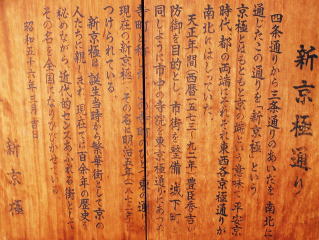 新京極通り
四条通りから三条通りのあいだを、南北に
通じたこの通りを「新京極」という
京極とはもともと京の端という意味、平安京
時代、都の両端にそれぞれ東西各京極通りが
南北にはしっていた。
天正年間(西暦一五七三〜九二年)豊臣秀吉
防御を目的とし、市街を整備、城下町
同じように市中の寺院を東京極通りにあつめ
現在の新京極、その名は明治五年(一八七二年)
つけられている。
新京極は、誕生当時から繁華街として京の
人たちに親しまれ、現在では百余年の歴史を
秘めながら、近代的センスあふれる街として
その名を全国になりひびかせている。
昭和五十六年三月吉日
新京極